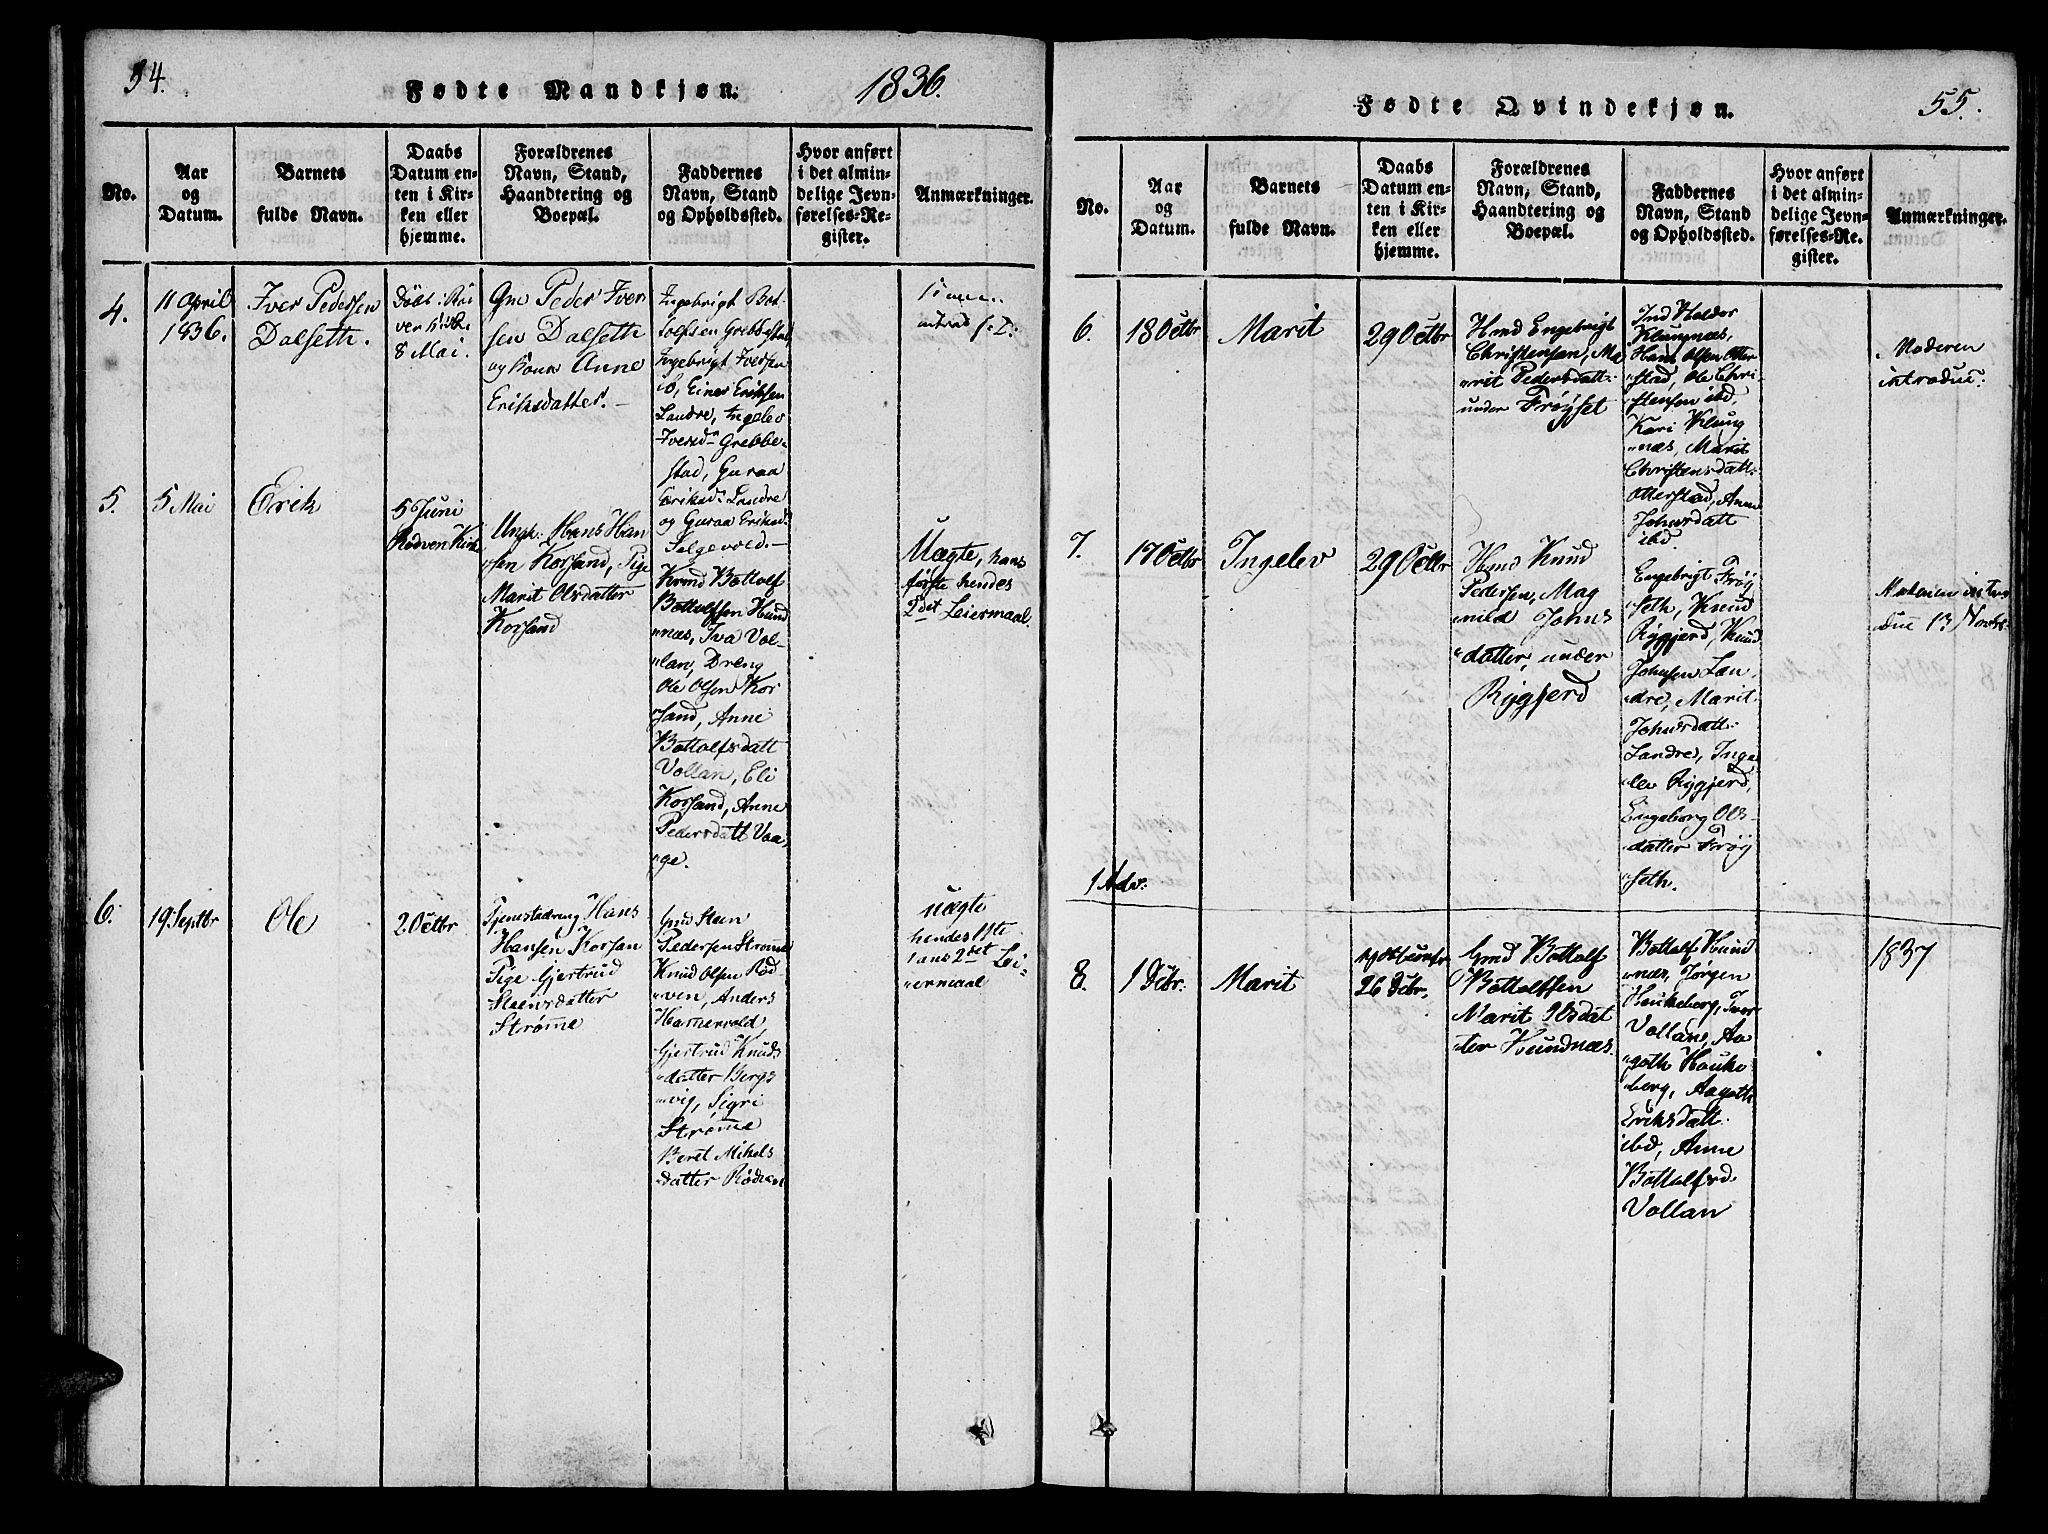 54.
Fødte Mandkjøn.
1836.
No.
Aar
og
Datum.
Barnets
fulde Navn.
Daabs
Datum en-
ten i Kir-
ken eller
hjemme.
Forældrenes
Navn, Stand,
Haandtering og
Boepæl.
Faddernes
Navn, Stand
og Opholdssted.
Hvor anført
i det almin-
delige Jevn-
førelses-Re-
gister.
Anmærkninger.
4.
11 April
1836.
Iver Pedersen
Dalseth.
Döbt i Rö
ven Kirke
8 Mai.
Gm Peder Iver
sen Dalseth
og Kone Anne
Eriksdatter.
Ingebrigt Bot-
tolfsen Grebbestad
Ingebrigt Iversen
ib, Einer Eriksen
Landre, Ingelev
Iversd. Grebbe-
stad, Guraa
Eriksd. Landre
og Guraa Eriksd.
Solgevold.
5.
5 Mai
Erik
5 Juni
Rödven Kirke
Ungk. Hans Han
sen Korsand, Pige
Marit Olsdatter
Korsand
Gmd Bottolf
Bottolfsen Hund
næs, Iva Vol-
lan, Dreng
Ole Olsen Kor
sand, Anne
Bottolfsdatt
Vollan, Eli
Korsand, Anne
Pedersdatt Vaa-
ge.
Uægte, hans
første hendes
2det Leiermaal.
6.
19 Septbr
Ole
2 Octbr
Tjenestedreng Hans
Hansen Korsan
Pige Gjertrud
Steensdatter
Strømme
Gmd Steen
Pedersen Strømme
Knud Olsen Rød
ven, Anders
Hamervold
Gjertrud Knuds
datter Bergs
vig, Sigri
Strømme
Beret Mikels
datter Rødven
uægte
hendes 1ste
hans 2det Lei-
ermaal
Fødte Qvindekjøn.
55.
No.
Aar
og
Datum.
Barnets
fulde Navn.
Daabs
Datum en-
ten i Kir-
ken eller
hjemme.
Forældrenes
Navn, Stand,
Haandtering og
Boepæl.
Faddernes
Navn, Stand
og Opholdssted.
Hvor anført
i det almin-
delige Jevn-
førelses-Re-
gister.
Anmærkninger.
6.
18 Octbr
Marit
29 Octbr
Hmd Engebrigt
Christensen, Ma
rit Pedersdatt.
under Frøyset
Ind Halder
Klungnæs,
Hans Olsen Otter
stad, Ole Chri-
stensen ibd,
Kari Klung
næs, Marit
Christensdatt.
Otterstad, Anne
Johnsdatt
ibd.
Moderen
introduc.
7.
17 Octbr
Ingelev
29 Octbr
Hmd Knud
Pedersen, Mag
nild Johns
datter, under
Rygjerd
Engebrigt Frøy
seth, Knud
Rygjerd, Knud
Johnsen Lan
dre, Marit
Johnsdatt.
Landre, Inge
lev Rygjerd,
Engeborg Ols-
datter Frøy
seth.
Moderen intro
duc 13 Novbr
1 Adv.
8.
1 Dcbr.
Marit
26 Dcbr.
Gmd Bottolf
Bottolfsen
Marit Olsdat
ter Hundnæs.
Bottolf Hund
næs, Jørgen
Houkeberg, Iver
Vollan, Aa
goth Houke-
berg, Aagoth
Eriksdatt.
ibd, Anne
Bottolfsd.
Vollan
1837